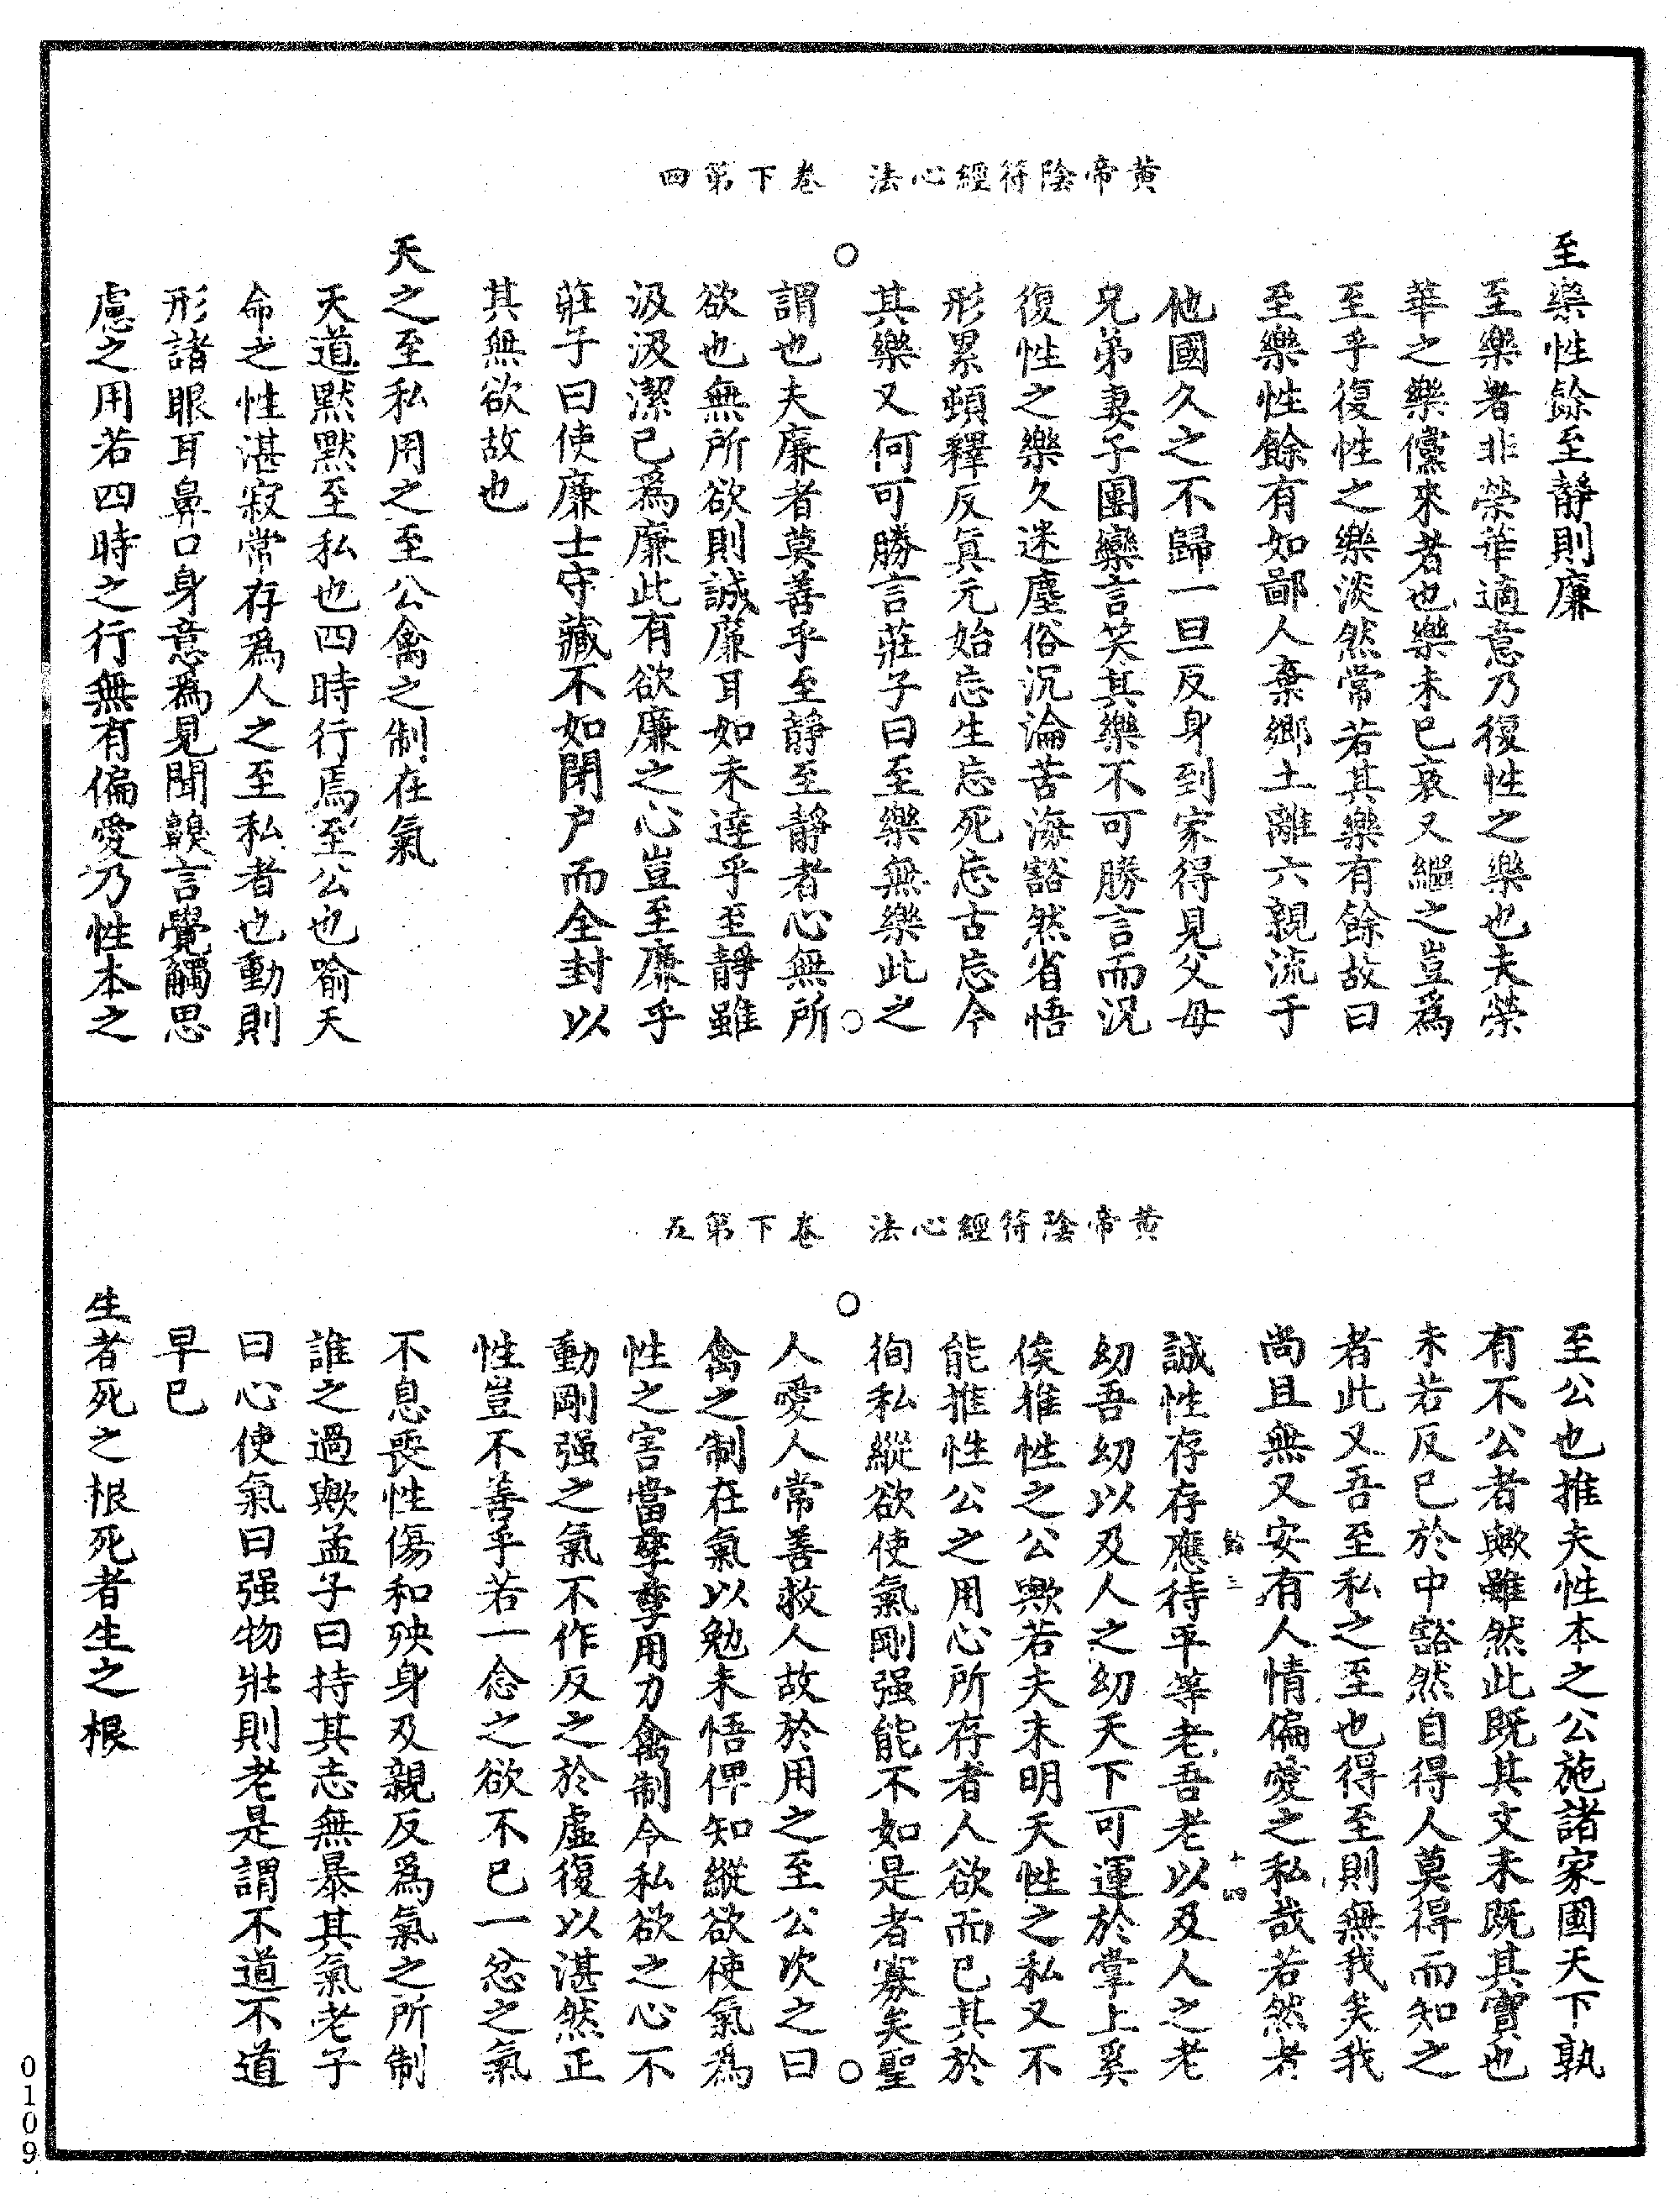 黃帝陰符經心法　卷下第四
至樂性餘至靜則廉
至樂者非榮華適意乃復性之樂也夫榮
華之樂儻來者也樂未已哀又繼之豈爲
至乎復性之樂淡然常若其樂有餘故曰
至樂性餘有如鄙人棄鄉土離六親流于
他國久之不歸一旦反身到家得見父母
兄弟妻子團欒言笑其樂不可勝言而況
復性之樂久迷塵俗沉淪苦海豁然省悟
形累頓釋反眞元始忘生忘死忘古忘今
其樂又何可勝言莊子曰至樂無樂此之
謂也夫廉者莫善乎至靜至靜者心無所
欲也無所欲則誠廉耳如未達乎至靜雖
汲汲潔已爲廉此有欲廉之心豈至廉乎
莊子曰使廉士守藏不如閉户而全封以
其無欲故也
天之至私用之至公禽之制在氣
天道默默至私也四時行焉至公也喻天
命之性湛寂常存爲人之至私者也動則
形諸眼耳鼻口身意爲見聞齅言覺觸思
慮之用若四時之行無有偏愛乃性本之
黃帝陰符經心法　卷下第五
至公也推夫性本之公施諸家國天下孰
有不公者歟雖然此既其文未既其實也
未若反已於中豁然自得人莫得而知之
者此又吾至私之至也得至則無我矣我
尚且無又安有人情偏愛之私哉若然者
誠性存存應待平等老吾老以及人之老
幼吾幼以及人之幼天下可運於掌上奚
俟推性之公歟若夫未明天性之私又不
能推性公之用心所存者人欲而已其於
徇私縱欲使氣剛强能不如是者寡矣聖
人愛人常善救人故於用之至公次之曰
禽之制在氣以勉未悟俾知縱欲使氣爲
性之害當孳孳用力禽制令私欲之心不
動剛强之氣不作反之於虛復以湛然正
性豈不善乎若一念之欲不已一忿之氣
不息喪性傷和殃身及親反爲氣之所制
誰之過歟孟子曰持其志無暴其氣老子
曰心使氣曰强物壯則老是謂不道不道
早已
生者死之根死者生之根
0109